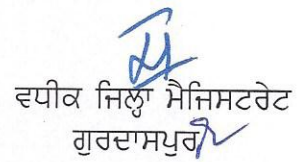 ਵਧੀਕ ਜਿਲ੍ਹਾ ਮੈਜਿਸਟਰੇਟ
ਗੁਰਦਾਸਪੁਰ